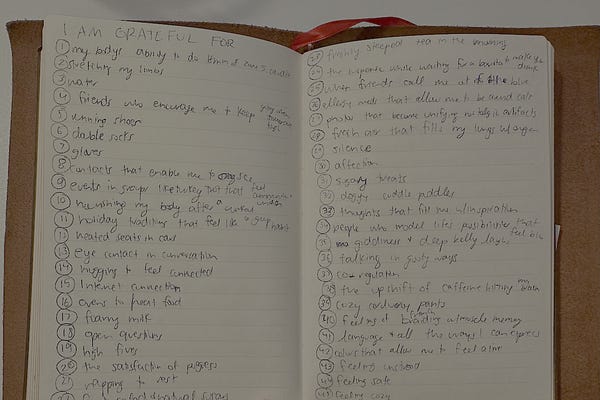 I AM GRATEFUL FOR
1 my body's ability to do
2 stretching my limbs
3 water
4 friends who encourage me to keep going when
5 running shoes
6 double socks
7 gloves
8 contacts that enable me to see
9 events in groups like turkey trot that feel
10 nourishing my body after a workout
11 holiday traditions that feel like a group
12 heated seats in cars
13 eye contact in conversation
14 hugging to feel connected
15 Internet connection
16 ovens to heat food
17 foamy milk
18 open questions
19 high fives
20 the satisfaction of progress
21 to rest
23 freshly steeped tea in the morning
24 the suspense while waiting for a barista to make your drink
25 when friends call me out of the blue
26 allergy meds that allow me to be around cats
27 photos that become unifying nostalgic artifacts
28 fresh air that fills my lungs w/ oxygen
29 silence
30 affection
31 sugary treats
32 doggy cuddle puddles
33 thoughts that fill me w/ inspiration
34 people who model life's possibilities that feel
35 giddiness & deep belly laughs
36 talking in goofy ways
37 co regulation
38 the upshift of caffeine hitting my brain
39 cozy corduroy pants
40 feeling of braiding muscle memory
41 language & all the ways I can express
42 colors that allow me to feel alive
43 feeling understood
44 feeling safe
45 feeling cozy